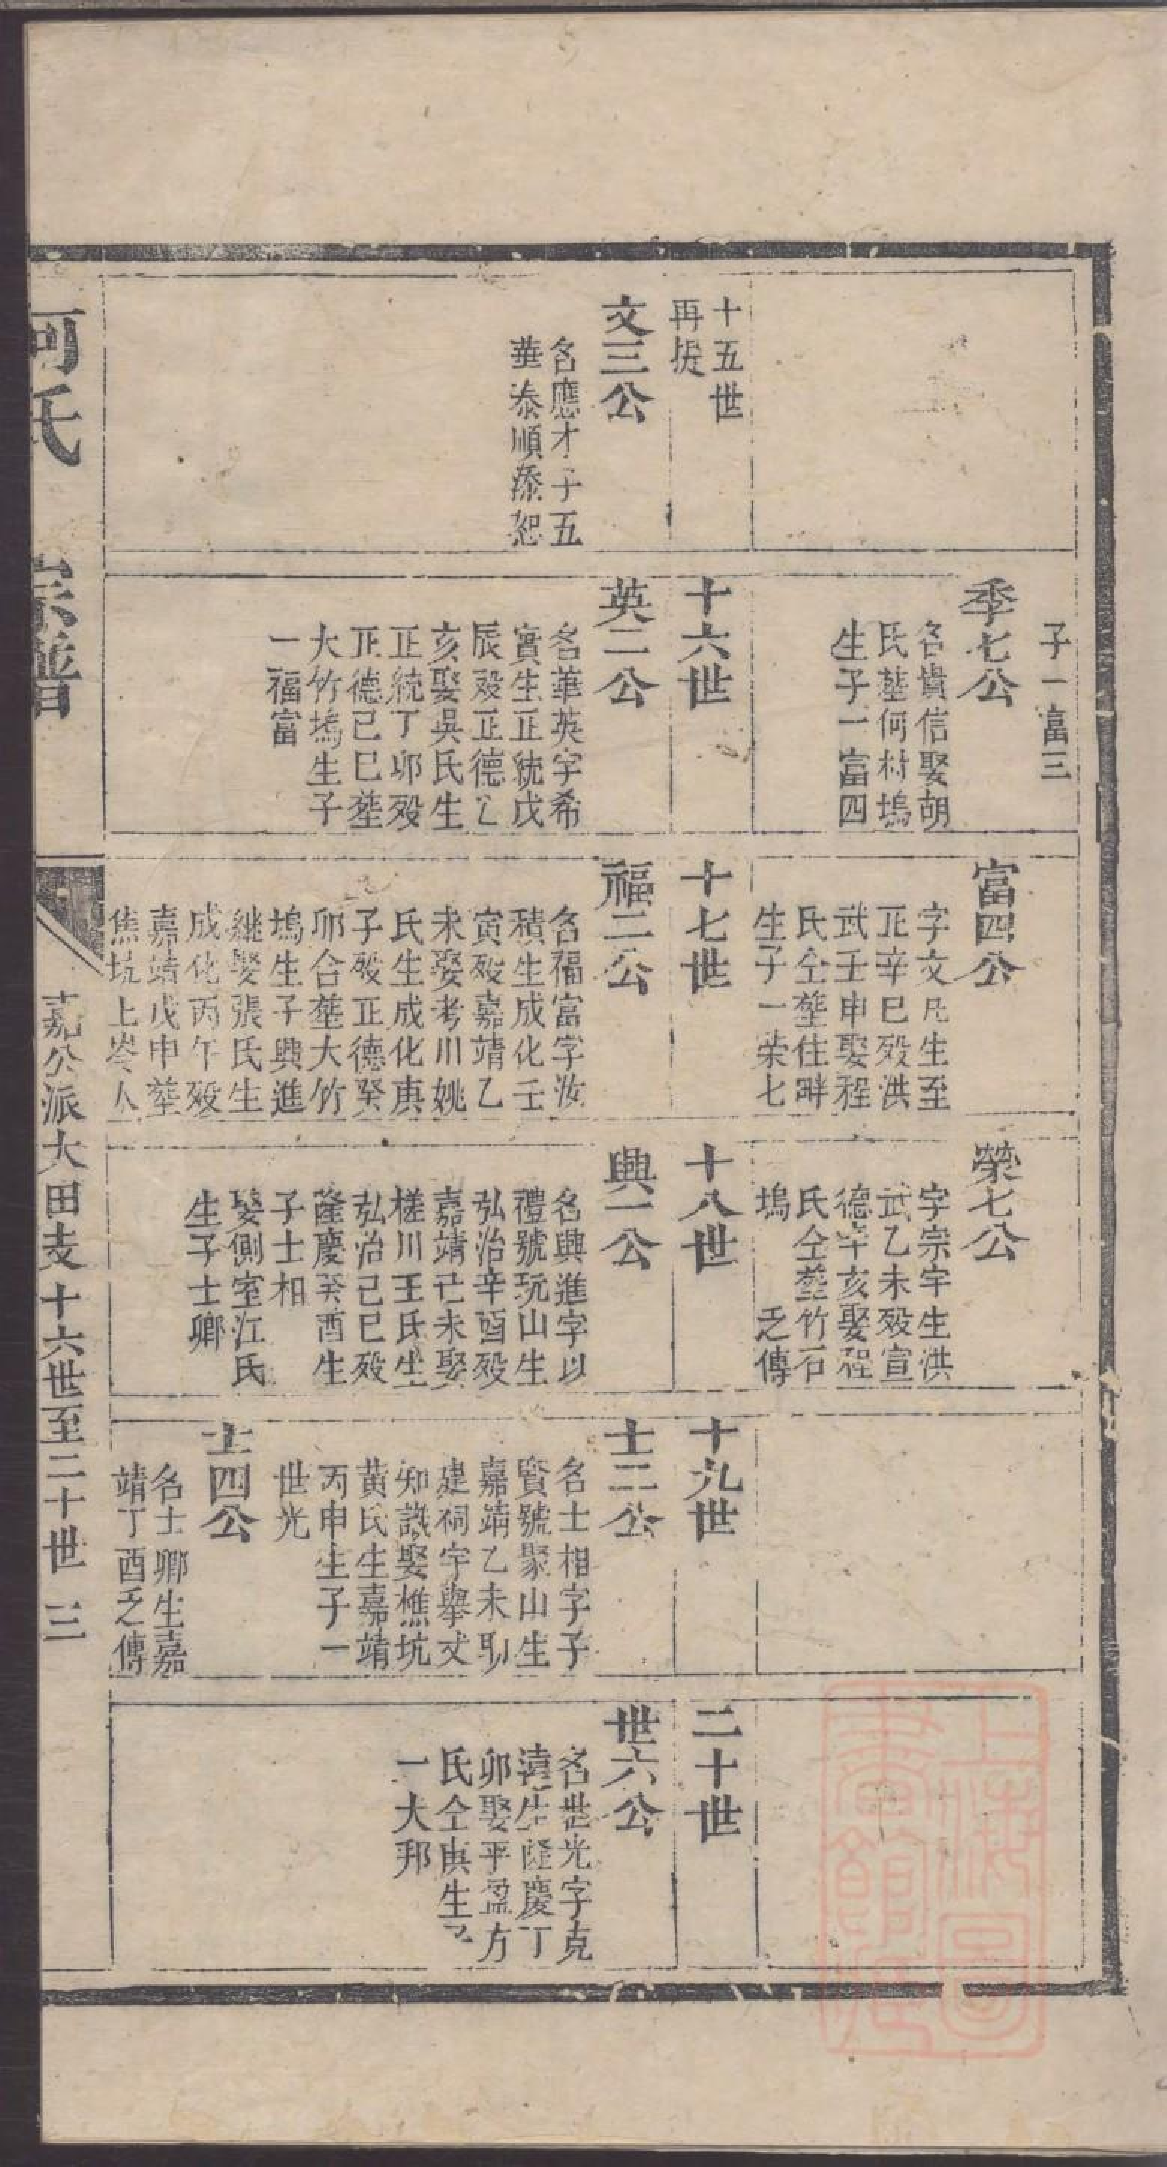 十五世
再提
文三公
名應才子五
華泰順添恕
子一富三
季七公
名貴信娶胡
氏塟何村塢
生子一富四
十六世
英二公
名華英字希
實生正統戊
辰殁正德乙
亥娶吳氏生
正統丁卯殁
正德己巳塟
大竹塢生子
一福富
富四公
字文凡生至
正辛巳殁洪
武壬申娶程
氏仝塟住畔
生子一荣七
十七世
福二公
名福富字汝
積生成化壬
寅殁嘉靖乙
未娶考川姚
氏生成化庚
子殁正德癸
卯合塟大竹
塢生子興進
継娶張氏生
成化丙午殁
嘉靖戊申塟
焦坑上岺人
榮七公
字宗宇生洪
武乙未殁宣
德辛亥娶程
氏仝塟竹石
塢 乏傳
十八世
興一公
名興進字以
禮號玩山生
弘治辛酉殁
嘉靖己未娶
槎川王氏生
弘治己巳殁
隆慶癸酉生
子士相
娶側室江氏
生子士卿
十九世
士二公
名士相字子
賢號聚山生
嘉靖乙未
建祠宇舉丈
知識娶樵坑
黃氏生嘉靖
丙申生子一
世光
士四公
名士卿生嘉
靖丁酉乏傳
二十世
世六公
名世光字克
生隆慶丁
卯娶平盈方
氏仝庚生子
一大邦
何氏 宗譜
嘉公派大田支十六世至二十世 三
上海圖
書館藏